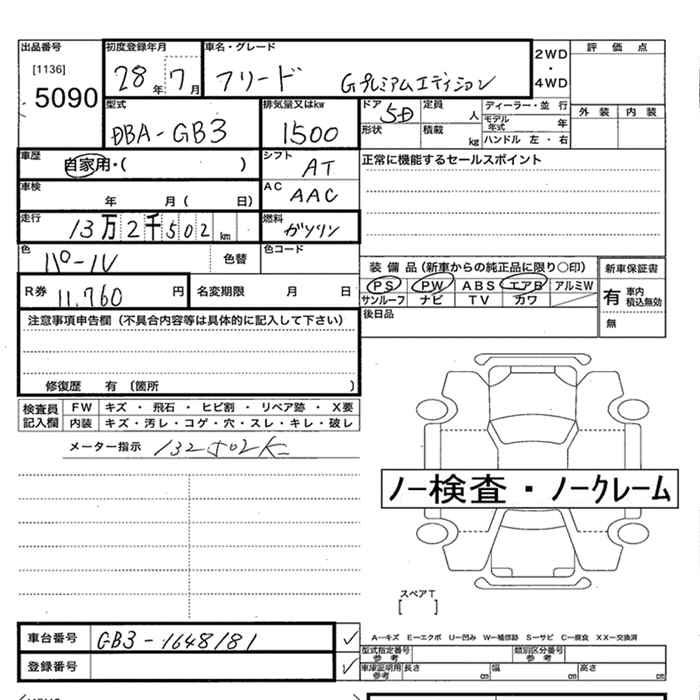 出品番号 初度登録年月 車名・グレード 2WD・4WD 評価点
[1136] 5090 28年 7月 フリード Gプレミアムエディション
型式 排気量又はkw ドア 5D 定員 人 ディーラー・並行 外装 内装
DBA-GB3 1500 形状 積載 kg モデル年式 年
ハンドル 左・右
車歴 自家用・( ) シフト AT 正常に機能するセールスポイント
車検 年 月( 日) AC AAC
走行 13万2千502km 燃料 ガソリン
色 パール 色替 色コード
装備品(新車からの純正品に限り○印) 新車保証書
R券 11.760円 名変期限 月 日 PS PW ABS エアB アルミW 有 車内積込無効
サンルーフ ナビ TV カワ
注意事項申告欄(不具合内容等は具体的に記入して下さい) 後日品 無
修復歴 有〔箇所 〕
検査員記入欄 FW キズ・飛石・ヒビ割・リペア跡・X要
内装 キズ・汚レ・コゲ・穴・スレ・キレ・破レ
メーター指示 132502K
ノー検査・ノークレーム
スペアT
[ ]
車台番号 GB3-1648181 ✓ A―キズ E―エクボ U―凹み W―補修跡 S―サビ C―腐食 XX―交換済
型式指定番号 参考 類別区分番号 参考
登録番号 ✓ 車庫証明用参考 長さ cm 幅 cm 高さ cm